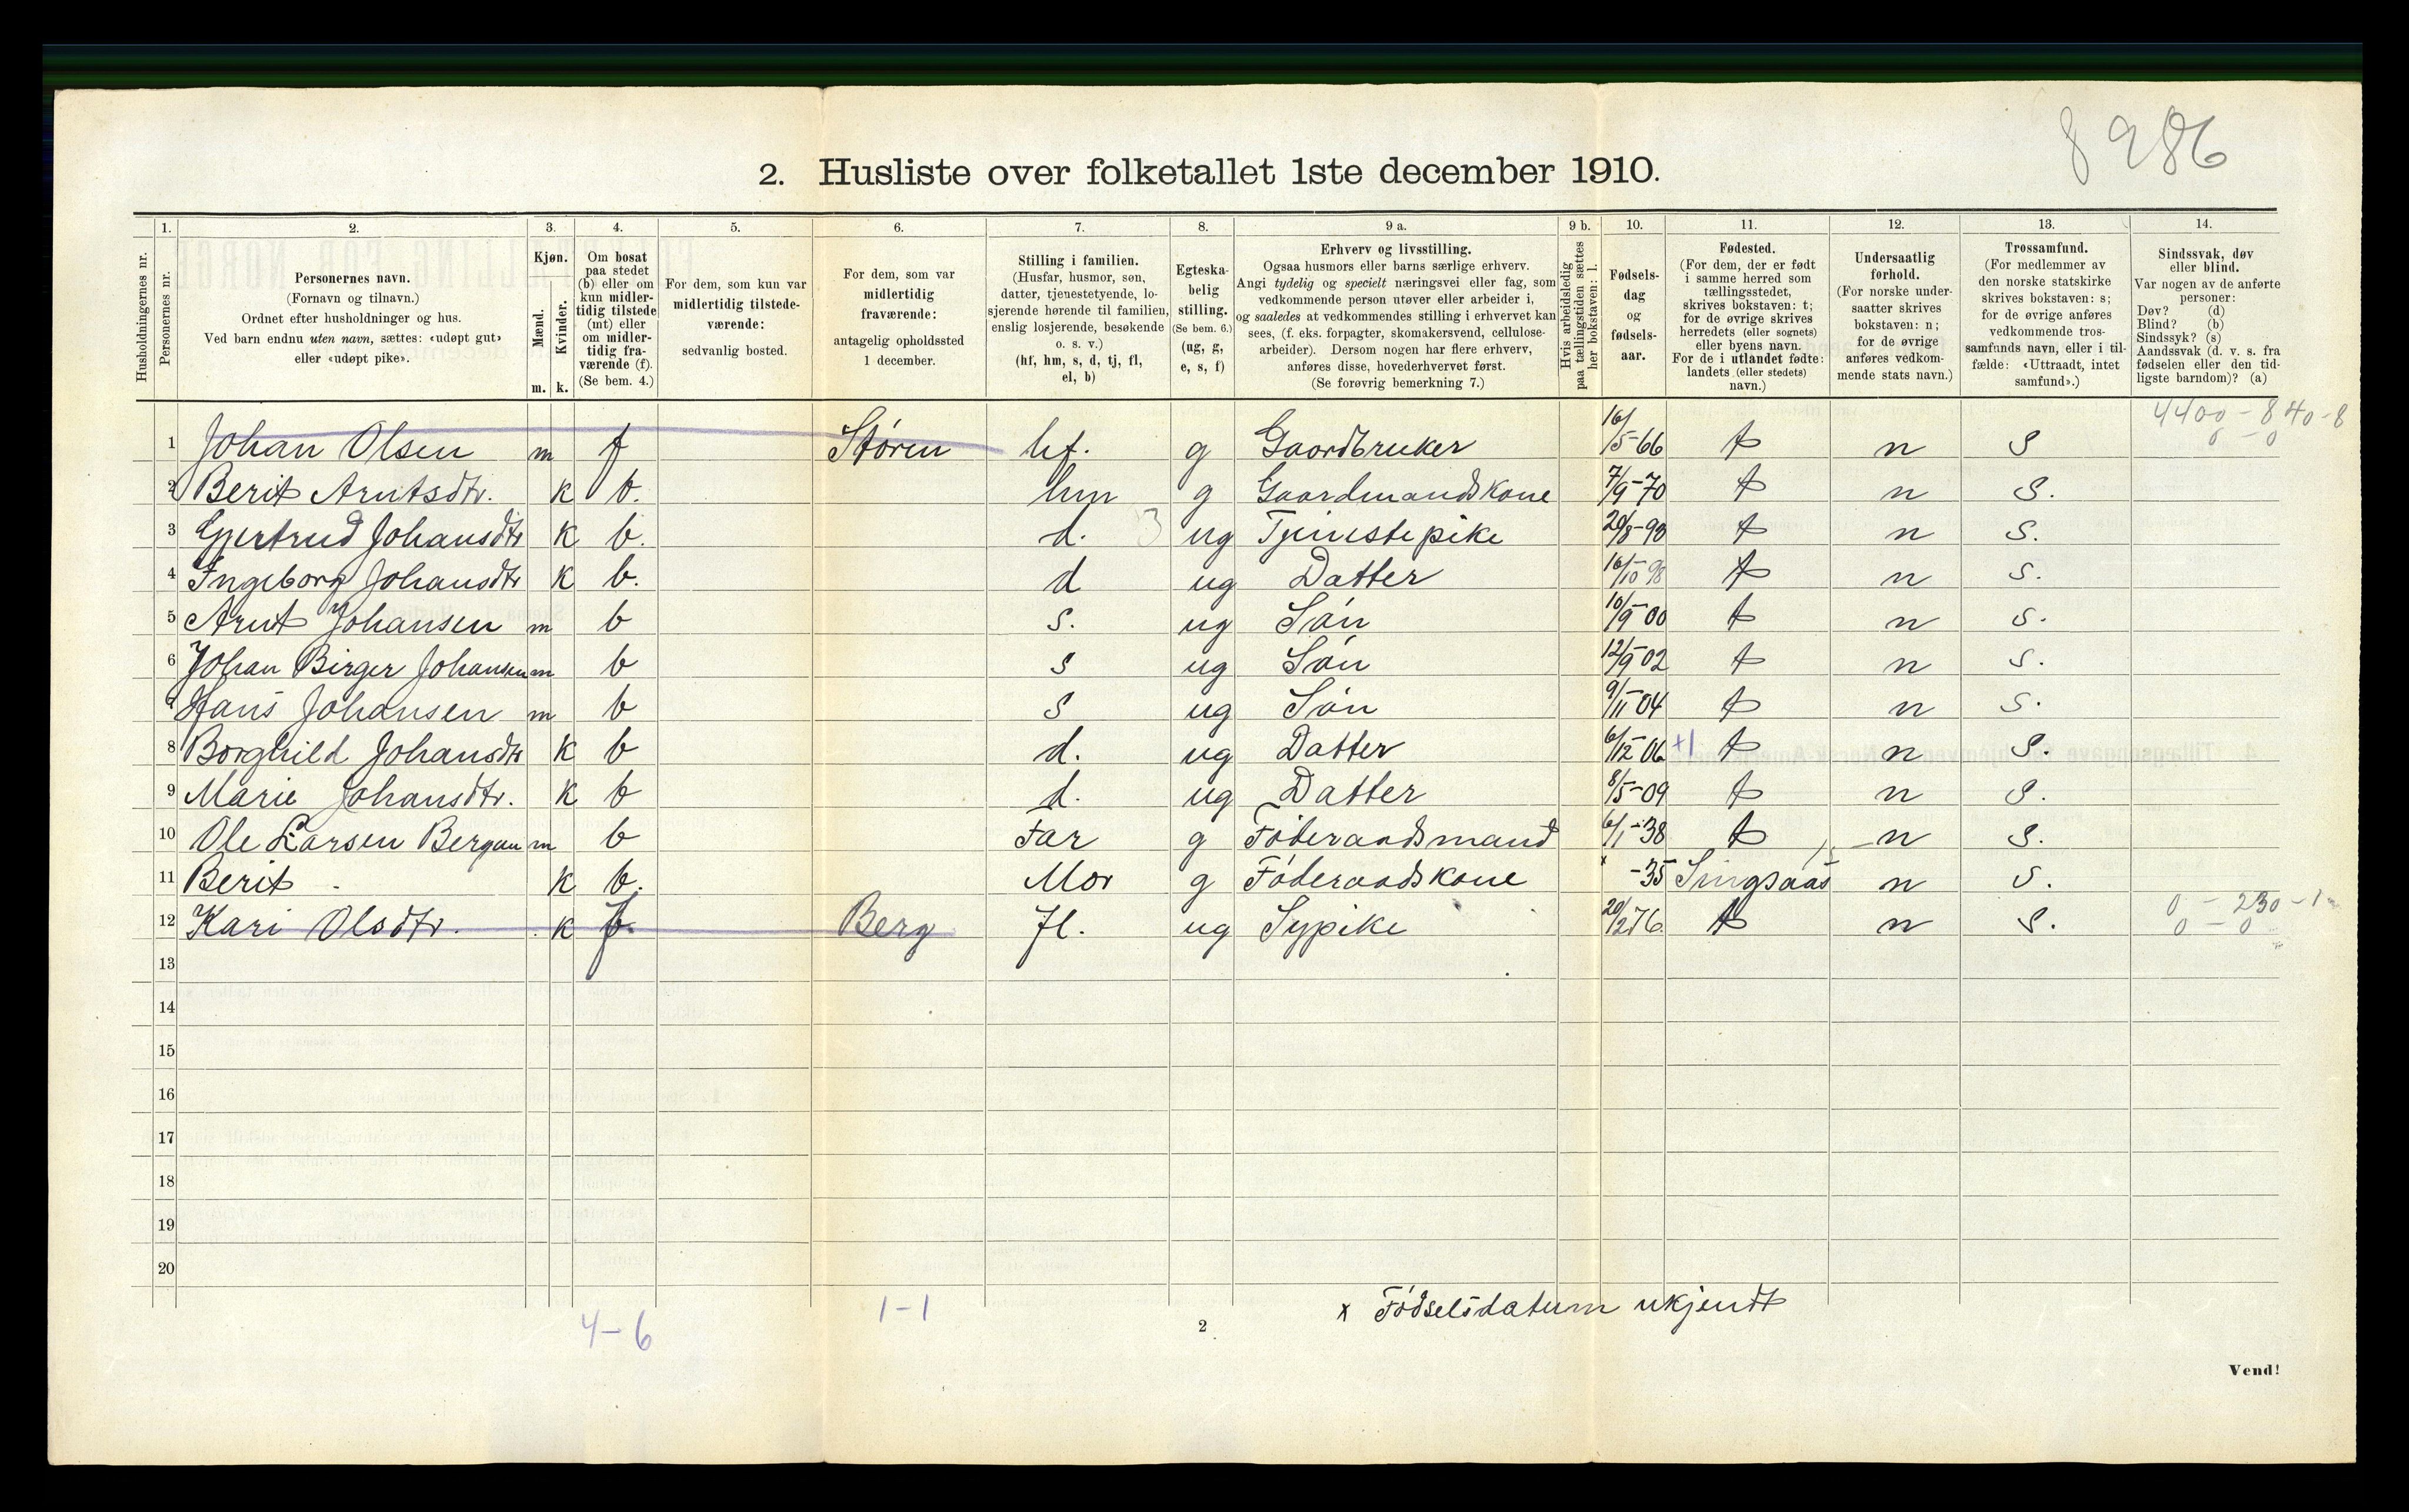 8 986
2. Husliste over folketallet 1ste december 1910.
1. 2. 3. 4. 5. 6. 7. 8. 9 a. 9 b. 10. 11. 12. 13. 14.
Husholdningernes nr.
Personernes nr.
Personernes navn.
(Fornavn og tilnavn.)
Ordnet efter husholdninger og hus.
Ved barn endnu uten navn, sættes: «udøpt gut»
eller «udøpt pike».
Kjøn.
Mænd.
Kvinder.
m. k.
Om bosat
paa stedet
(b) eller om
kun midler-
tidig tilstede
(mt) eller
om midler-
tidig fra-
værende (f).
(Se bem. 4.)
For dem, som kun var
midlertidig tilstede-
værende:
sedvanlig bosted.
For dem, som var
midlertidig
fraværende:
antagelig opholdssted
1 december.
Stilling i familien.
(Husfar, husmor, søn,
datter, tjenestetyende, lo-
sjerende hørende til familien,
enslig losjerende, besøkende
o. s. v.)
(hf, hm, s, d, tj, fl,
el, b)
Egteska-
belig
stilling.
(Se bem. 6.)
(ug, g,
e, s, f)
Erhverv og livsstilling.
Ogsaa husmors eller barns særlige erhverv.
Angi tydelig og specielt næringsvei eller fag, som
vedkommende person utøver eller arbeider i,
og saaledes at vedkommendes stilling i erhvervet kan
sees, (f. eks. forpagter, skomakersvend, cellulose-
arbeider). Dersom nogen har flere erhverv,
anføres disse, hovederhvervet først.
(Se forøvrig bemerkning 7.)
Hvis arbeidsledig
paa tællingstiden sættes
her bokstaven: l.
Fødsels-
dag
og
fødsels-
aar.
Fødested.
(For dem, der er født
i samme herred som
tællingsstedet,
skrives bokstaven: t;
for de øvrige skrives
herredets (eller sognets)
eller byens navn.
For de i utlandet fødte:
landets (eller stedets)
navn.)
Undersaatlig
forhold.
(For norske under-
saatter skrives
bokstaven: n;
for de øvrige
anføres vedkom-
mende stats navn.)
Trossamfund.
(For medlemmer av
den norske statskirke
skrives bokstaven: s;
for de øvrige anføres
vedkommende tros-
samfunds navn, eller i til-
fælde: «Uttraadt, intet
samfund».)
Sindssvak, døv
eller blind.
Var nogen av de anførte
personer:
Døv? (d)
Blind? (b)
Sindssyk? (s)
Aandssvak (d. v. s. fra
fødselen eller den tid-
ligste barndom)? (a)
4400 - 840-8
0 - 0
1 Johan Olsen m f Støren hf. g Gaardbruker 16/5-66 t n S
2 Berit Arntsdtr. k b. hm g Gaardmandskone 7/9-70 t n S.
3 Gjertrud Johansdtr k b. d. 3 ug Tjenestepike 20/8-90 t n S.
4 Ingeborg Johansdtr k b. d ug Datter 16/10 98 t n S.
5 Arnt Johansen m b s. ug Søn 10/9-00 t n S.
6 Johan Birger Johansen m b s ug Søn 12/9 02 t n S.
Hans Johansen m b s ug Søn 9/11-04 t n S.
8 Borghild Johansdtr k b d. ug Datter 6/12-06 +1 t n S.
9 Marie Johansdtr. k b d. ug Datter 8/5-09 t n S.
10 Ole Larsen Bergan m b Far g Føderaadsmand 6/1-38 t n S.
11 Berit - k b. Mor g Føderaadskone x -35 Singsaas n S.
12 Kari Olsdtr. k f Berg fl. ug Sypike 20/2 76 t n S. 0 - 230 - 1
0 - 0
13
14
15
16
17
18
19
20
4-6
1-1
2
x Fødselsdatum ukjendt
Vend!